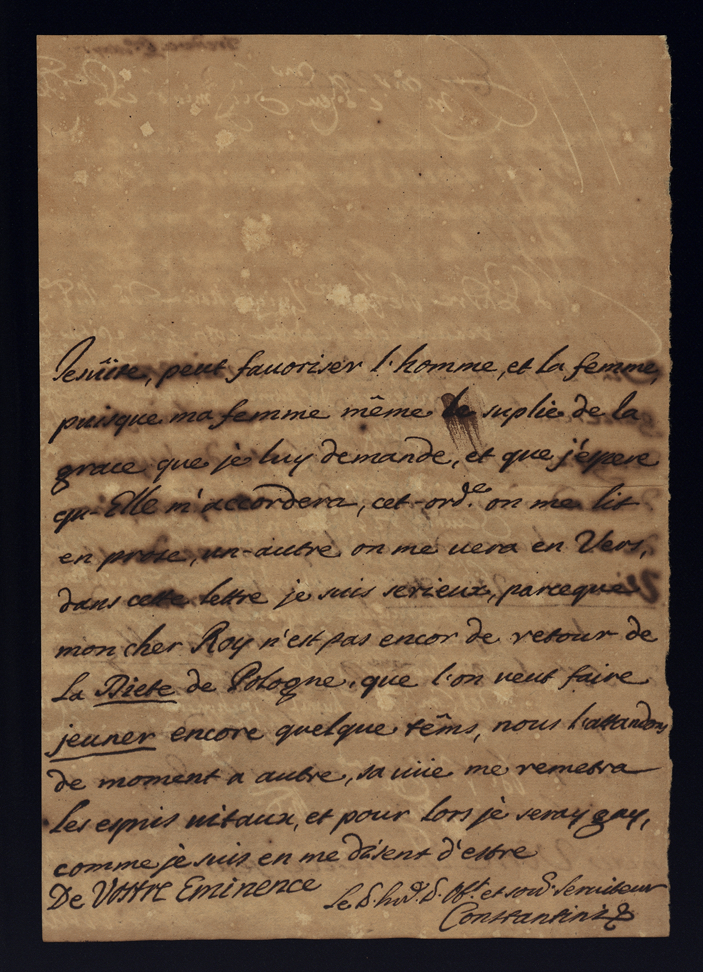 Jesüite, peut fauoriser l'homme, et la femme,
puisque ma femme même le suplie de la
grace que je luy demande, et que j'épere
qu'Elle m'accordera, cet-ord.e on me lit
en prose, un-autre on me uera en Vers,
dans cette lettre je suis serieux, parceque
mon cher Roy n'est pas encor de retour de
la Diete de Pologne, que l'on veut faire
jeuner encore quelque têms, nous l'attandons
de moment a autre, sa uüe me remetra
les espris uitaux, et pour lors je seray gay,
comme je suis en me disent d'estre
De Vôttre Eminence
et Serviteur
Constantini